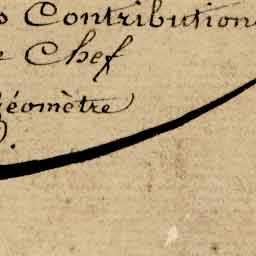 Contributions
Chef
Géomètre